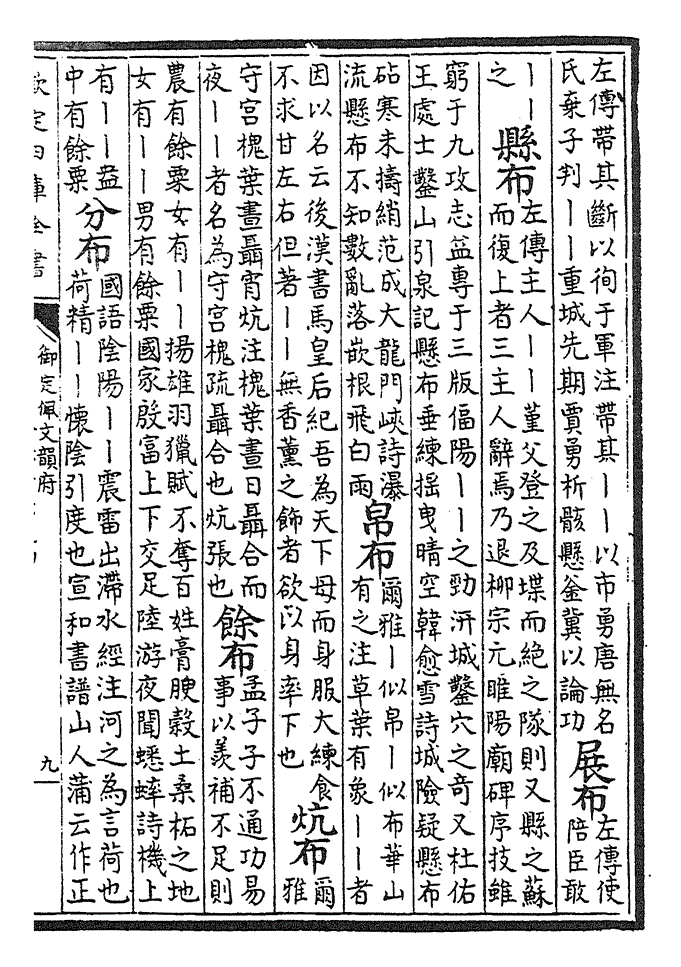 左傳帶其斷以徇于軍注帶其丨丨以市勇唐無名
氏棄子判丨丨重城先期賈勇析骸懸釜冀以論功
展布
左傳使
陪臣敢
丨丨
之
縣布
左傳主人丨丨堇父登之及堞而絶之隊則又縣之蘇
而復上者三主人辭焉乃退柳宗元睢陽廟碑序技雖
窮于九攻志益專于三版偪陽丨丨之勁汧城鑿穴之奇又杜佑
王處士鑿山引泉記懸布垂練揺曳晴空韓愈雪詩城險疑懸布
砧寒未擣綃范成大龍門峽詩瀑
流懸布不知數亂落嵌根飛白雨
帛布
爾雅丨似帛丨似布華山
有之注草葉有象丨丨者
因以名云後漢書馬皇后紀吾為天下母而身服大練食
不求甘左右但著丨丨無香薰之飾者欲以身率下也
炕布
爾
雅
守宫槐葉晝聶宵炕注槐葉晝日聶合而
夜丨丨者名為守宫槐疏聶合也炕張也
餘布
孟子子不通功易
事以羨補不足則
農有餘粟女有丨丨揚雄羽獵賦不奪百姓膏腴穀土桑柘之地
女有丨丨男有餘粟國家殷富上下交足陸游夜聞蟋蟀詩機上
有丨丨盎
中有餘粟
分布
國語陰陽丨丨震雷出滯水經注河之為言荷也
荷精丨丨懷陰引度也宣和書譜山人蒲云作正
欽定四庫全書
御定佩文韻府
九